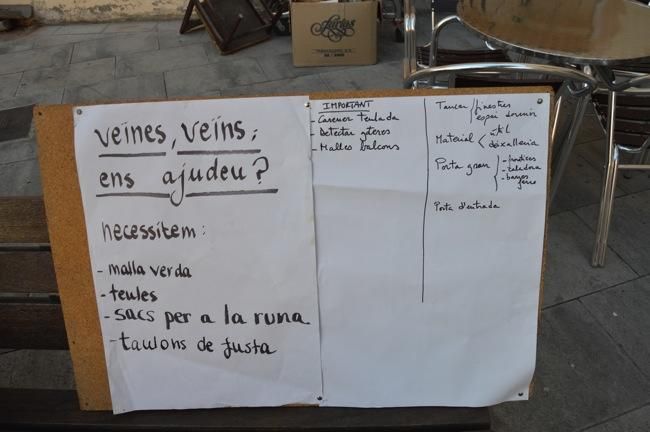 veïnes, veïns;
ens ajudeu?
necessitem:
- malla verda
- teules
- sacs per a la runa
- taulons de fusta
IMPORTANT
- Carener teulada
- Detectar goteres
- Malles balcons
Tancar / finestres
espai dormir
Material <
deixalleria
Porta gran
- frontices
- taladora
- barres
ferro
Porta d'entrada